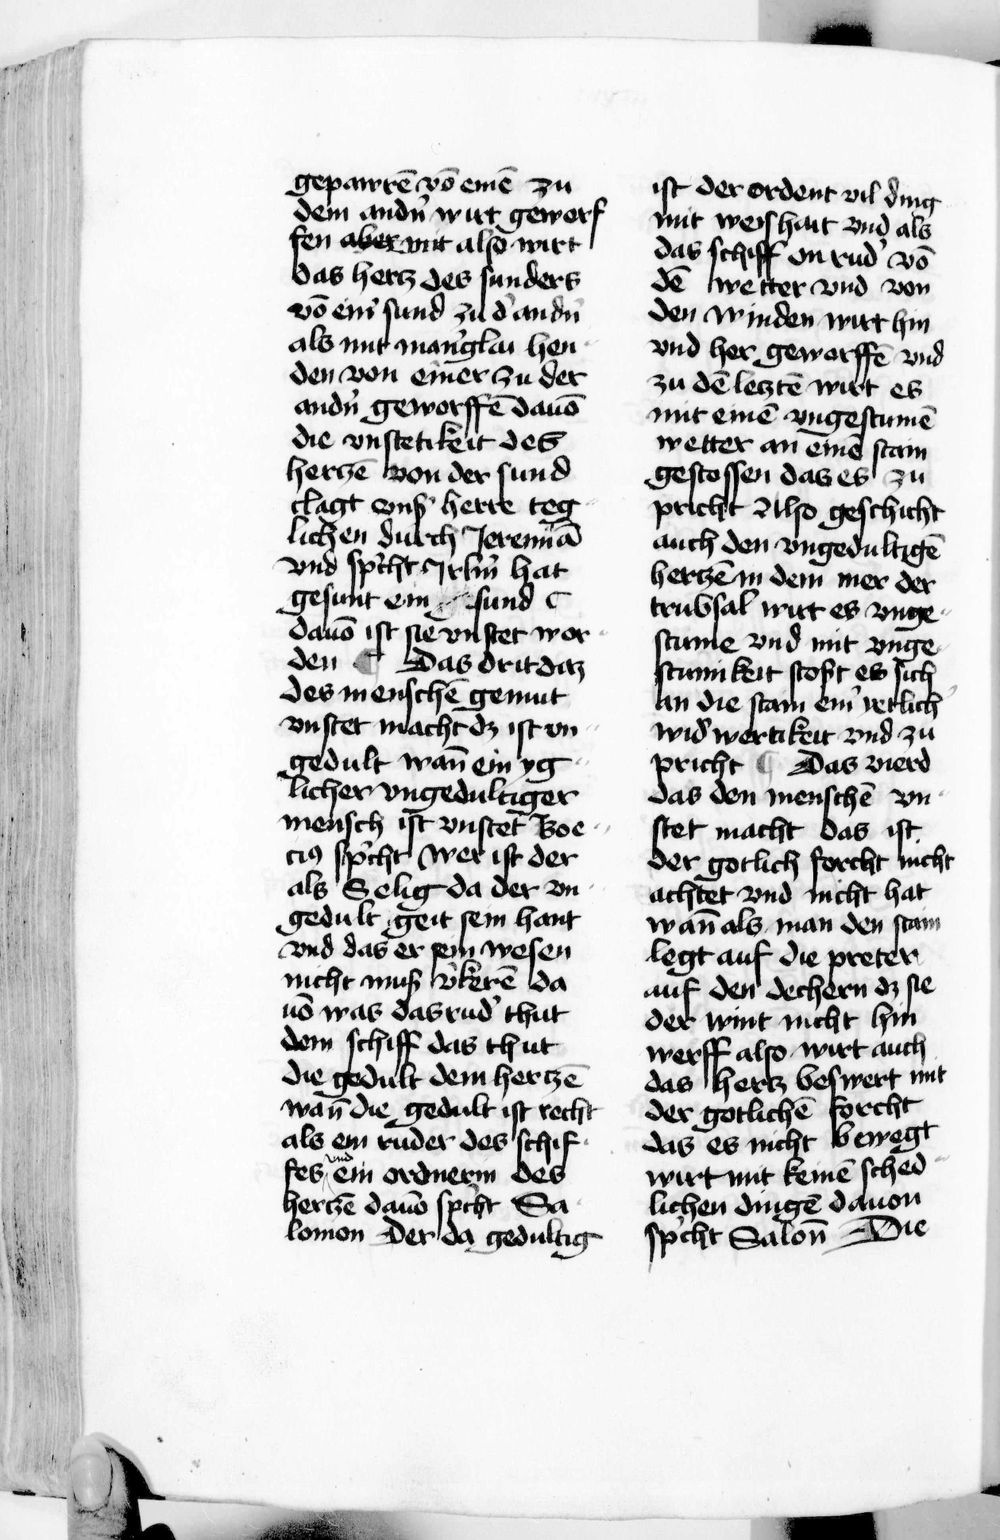 gepawrē vō einē zu
dem andn̄ wirt geworf
fen aber mit also wirt
das hertz des sunders
vō ein̄ sund zu d' andn̄
als mit man̄glai hen
den von einer zu der
andn̄ geworffē dauō
die vnstetikeit des
hertzē von der sund
clagt vnß herre teg
lichen durch Jeremiā
vnd sp̄cht Jrlm̄ hat
gesunt ein sund ¶
dauō ist sie vnstet wor
den ¶ Das drit daz
des menschē gemut
vnstet macht dz ist vn
gedult wan̄ ein yg
licher vngedultiger
mensch ist vnstet Boe
cius sp̄cht wer ist der
als Selig da der vn
gedult geit sein hant
vnd das er sein wesen
nicht muß v̓kerē da
uō was das rud' thut
dem schiff das thut
die gedult dem hertzē
wan̄ die gedult ist recht
als ein ruder des schif
fes vnd ein ordnerin des
hertzē dauō sp̄cht Sa
lomon Der da gedultig
ist der ordent vil ding
mit weishait vnd als
das schiff on rud' vō
dē wetter vnd von
den winden wirt hin
vnd her geworffē vnd
zu dē letztē wirt es
mit einē vngestumē
wetter an einē stain
gestossen das es zu
pricht Also geschicht
auch den vngedultigē
hertzē in dem mer der
trubsal wirt es vnge
stume vnd mit vnge
stumikeit stost es sich
an die stain ein' yetlich'
wid'wertikeit vnd zu
pricht ¶ Das vierd
das den menschē vn
stet macht das ist
der gotlich forcht nicht
achtet vnd nicht hat
wan̄ als man den stain
legt auf die preter
auf den dechern dz sie
der wint nicht hin
werff also wirt auch
das hertz beswert mit
der gotlichē forcht
das es nicht bewegt
wirt mit keinē sched
lichen dingē dauon
sp̄cht Salon̄ Die